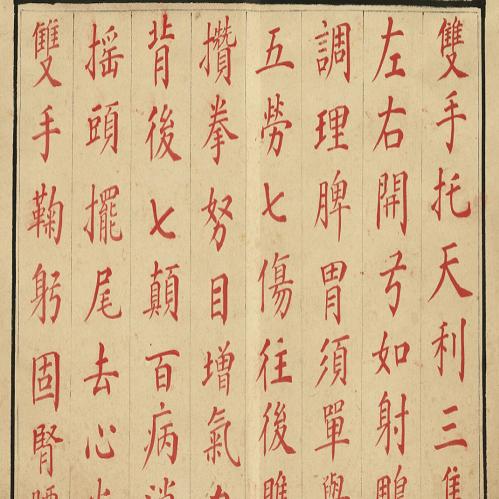 雙手托天利三
左右開弓如射
調理脾胃須單
五勞七傷往後
攢拳努目增氣
背後七顛百病
搖頭擺尾去心
雙手鞠躬固腎